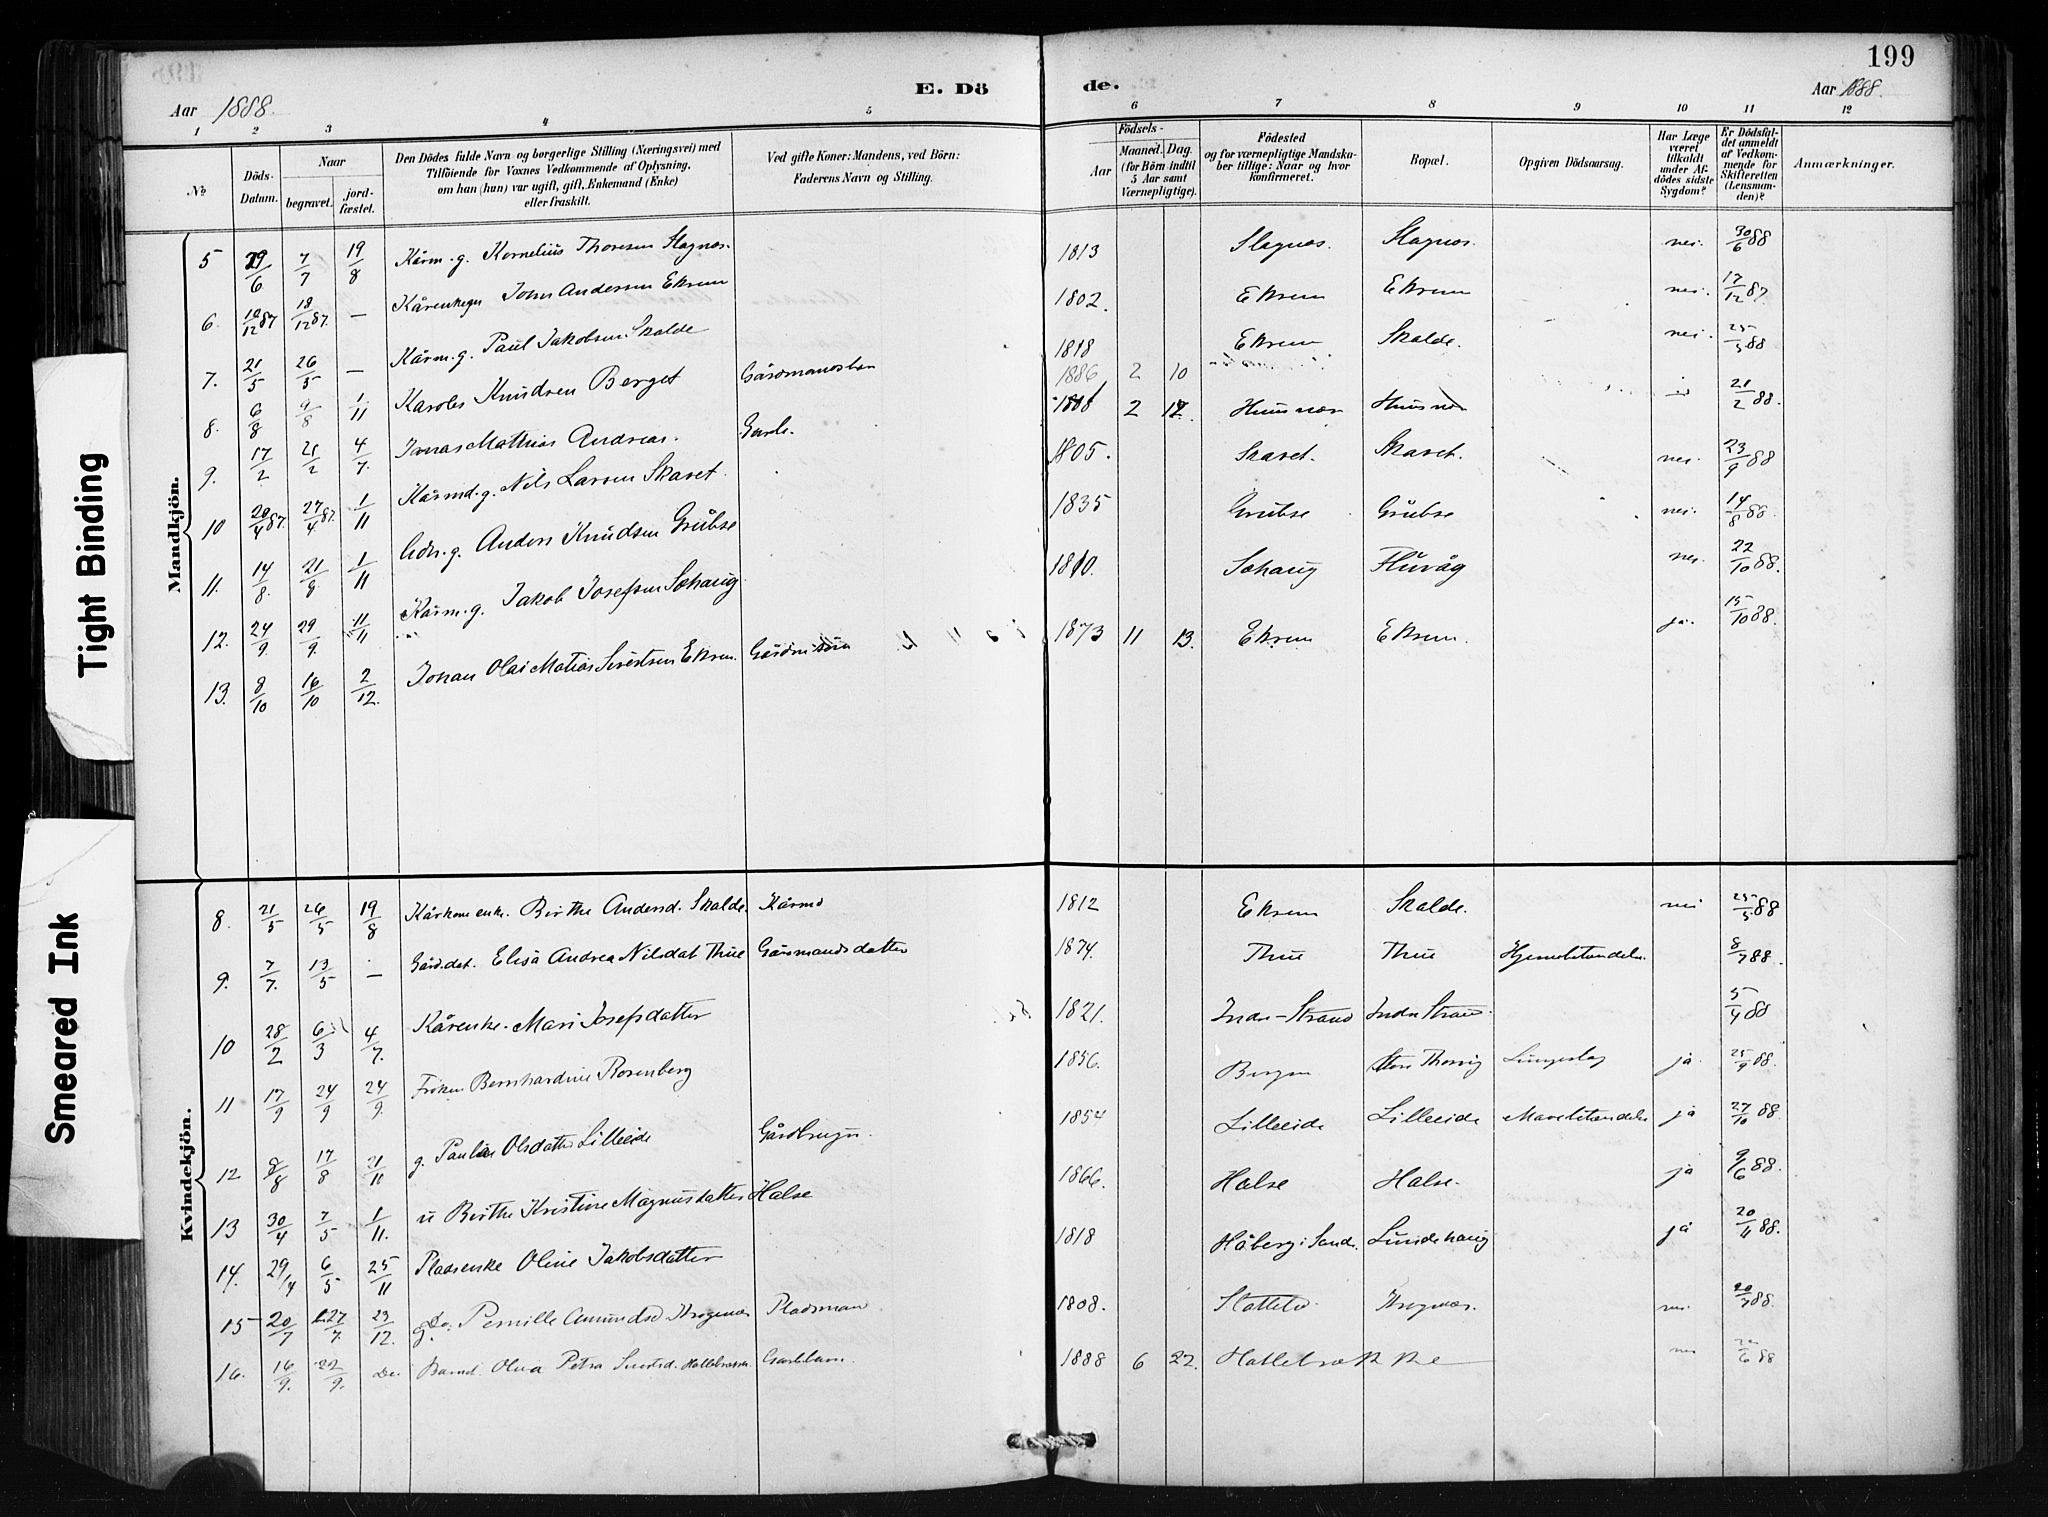 199
E. Döde.
Aar 1888.
Aar 1888.
1 2 3 4 5 6 7 8 9 10 11 12
No
Döds-Datum.
Naar
begravet.
jord-fæstet.
Den Dödes fulde Navn og borgerlige Stilling (Næringsvei) med
Tilföiende for Voxnes Vedkommende af Oplysning,
om han (hun) var ugift, gift, Enkemand (Enke)
eller fraskilt.
Ved gifte Koner: Mandens, ved Börn:
Faderens Navn og Stilling.
Födsels-
Aar
Maaned. Dag.
(for Börn indtil
5 Aar samt
Værnepligtige).
Födested
og for værnepligtige Mandska-
ber tillige: Naar og hvor
konfirmeret.
Bopæl.
Opgiven Dödsaarsag.
Har Læge
været
tilkaldt
under Af-
dödes sidste
Sygdom?
Er Dödsfal-
det anmeldt
af Vedkom-
mende for
Skifteretten
(Lensman-
den)?
Anmærkninger.
Mandkjön.
5 29/6 7/7 19/8 Kårm. g. Kornelius Thoresen Slagnes. 1813 Slagnes. Slagnes. nei. 30/6 88
6. 10/12 87 18/12 87. — John Andersen Ekrem 1802. Ekrem Ekrem nei. 17/12 87.
7. 21/5 26/5 — Kårm. g. Paul Jakobsen Skalde 1818 Ekrem Skalde. nei. 25/5 88
8. 6/8 9/8 1/11 Karolus Knudsen Berget Gårdmandsbarn 1886 2 10
9. 17/2 21/2 4/7. Jonas Mathias Andreas. 2 Huusnes Huusnes 21/2 88.
10 20/4 87. 27/4 87. 1/11 Kårmd. g. Nils Larsen Skaret. 1805. Skaret. Skaret. nei. 23/9 88
11. 14/8. 21/8. 1/11 g. Anders Knudsen Grubse 1835 Grubse Grubse nei. 14/8 88.
12. 24/9 29/9. 11/11 Kårm. g. Jakob Josefsen Sæhaug 1810. Sæhaug Fluvåg nei. 22/10 88.
13. 8/10 16/10 2/12. Johan Olai Matias Sivertsen Ekrem. 1873 11 13. Ekrem Ekrem. ja. 15/10 88.
Kvindekjön.
8. 21/5 26/5 19/8 Kårkone enke. Birthe Andersd. Skalde. Kårmd 1812 Ekrem Skalde. nei 25/5 88
9. 7/7. 13/5 — Gårddat. Elisa Andrea Nilsdat Thue Gårdmandsdatter 1874. Thue Thue Hjernebetændelse. 8/7 88.
10 28/2 6/3 4/7. Kårenke. Mari Josefsdatter 1821. Indre-Strand Indre Strand. 5/4 88
11 17/9 24/9 24/9. Frøken Bernhardine Rosenberg 1856. Bergen Store Thorvig Lungeslag ja. 25/9 88.
12 8/8 17/8 21/11 g. Pauline Olsdatter Lilleeide Gårdbruger. 1854 Lilleeide Lilleeide Mavebetændelse ja 27/10 88.
13 30/4 7/5 1/11. u Birthe Kristine Magnusdatter Halse 1866. Halse Halse. ja 9/6 88.
14. 29/4 6/5 25/11 Pladsenke Oline Jakobsdatter 1818 Håberg i Sand. Lundehaug ja 20/11 88.
15 20/7 27/7. 23/12. g. Pernille Amundsd Krognæs Pladsman 1808. Krognæs. nei. 20/7 88.
16. 16/9. 22/9. Do. Barnet Olna Petra Sivertsd. Hallebrække. Gaardbarn. 1888 6 22. Hallebrække nei 88
Tight Binding
Smeared Ink